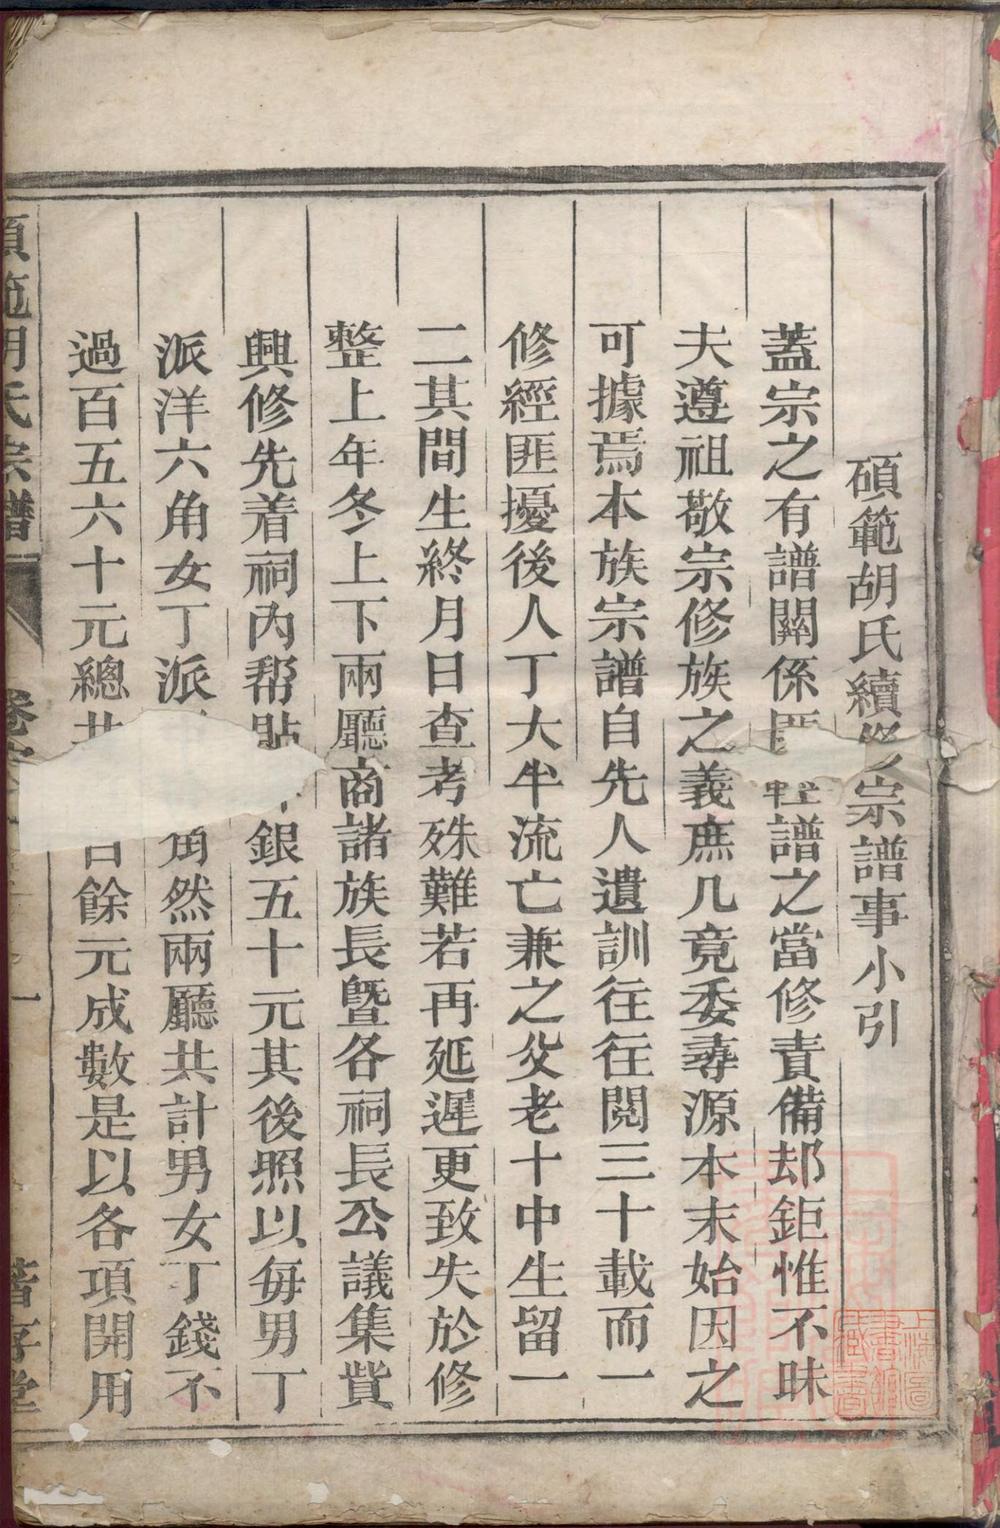 碩範胡氏續修宗譜事小引
蓋宗之有譜關係匪輕譜之當修責備却鉅惟不昧
夫遵祖敬宗修族之義庶几竟委尋源本末始因之
可據焉本族宗譜自先人遺訓往往閱三十載而一
修經匪擾後人丁大半流亡兼之父老十中生留一
二其間生終月日查考殊難若再延遲更致失於修
整上年冬上下兩廳商諸族長暨各祠長公議集貲
興修先着祠內帮貼銀五十元其後照以每男丁
派洋六角女丁派角然兩廳共計男女丁錢不
過百五六十元總共百餘元成數是以各項開用
碩範胡氏宗譜 卷 一